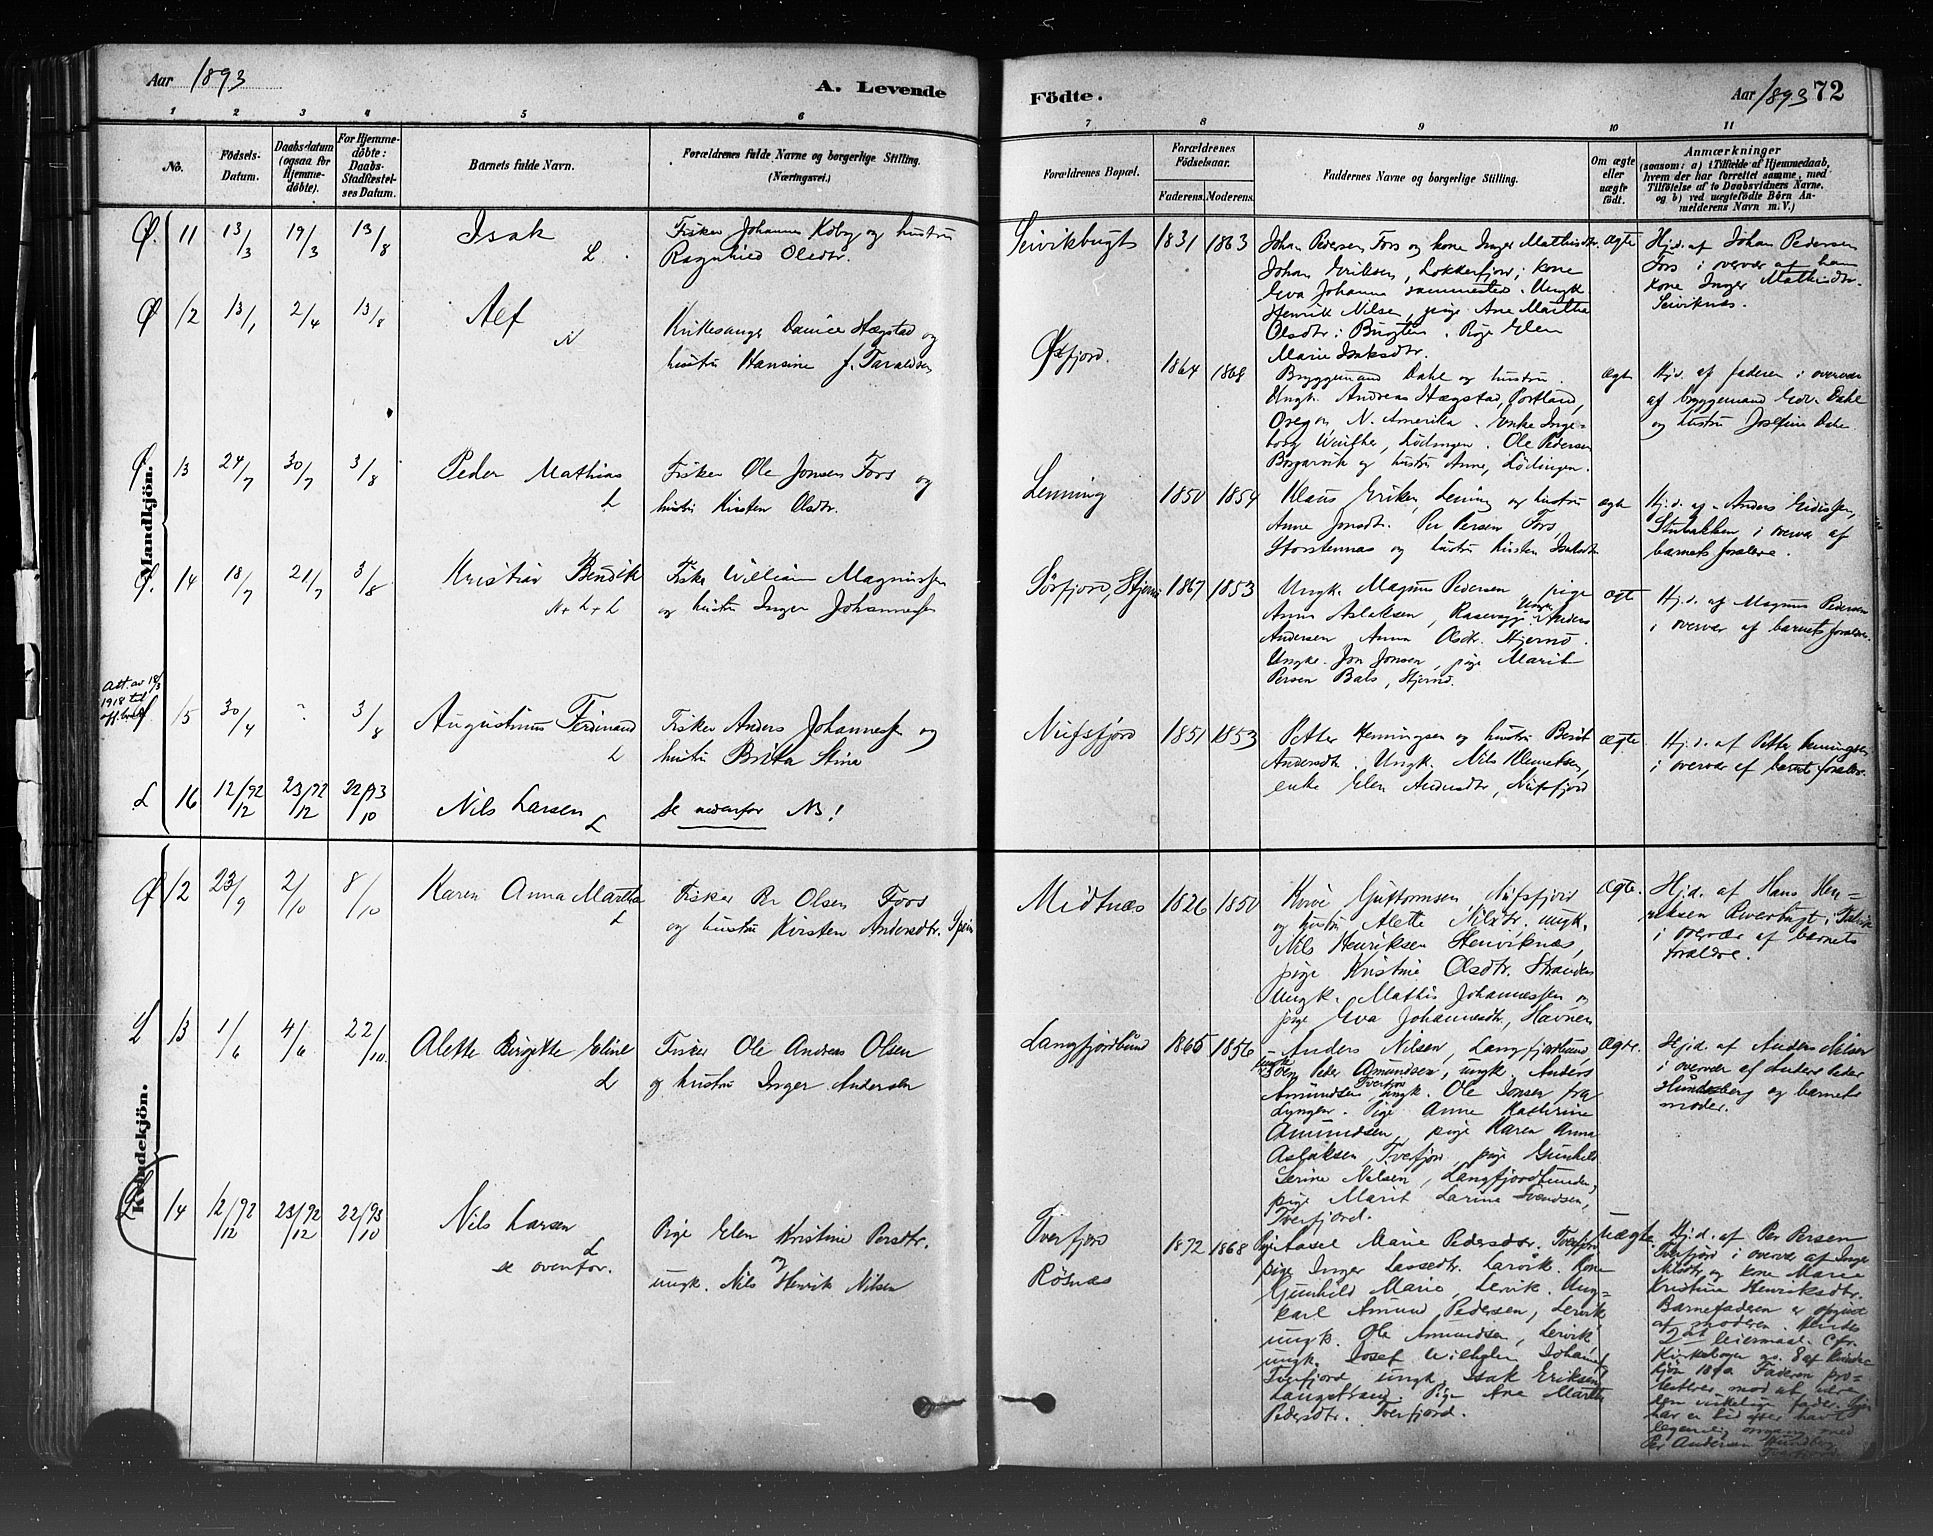 Aar 1893
A. Levende
Födte.
Aar 1893 72
1 2 3 4 5 6
7 8 9 10 11
No.
Födsels-
Datum.
Daabsdatum
(ogsaa for
Hjemme-
döbte).
For Hjemme-
döbte:
Daabs-
Stadfæstel-
ses Datum.
Barnets fulde Navn.
Forældrenes fulde Navne og borgerlige Stilling.
(Næringsvei.)
Forældrenes Bopæl.
Forældrenes
Födselsaar.
Faderens. Moderens.
Faddernes Navne og borgerlige Stilling.
Om ægte
eller
uægte
födt.
Anmærkninger
(saasom: a) i Tilfælde af Hjemmedaab,
hvem der har forrettet samme, med
Tilföielse af to Daabsvidners Navne,
og b) ved uægtefödte Börn An-
melderens Navn m. V.)
Mandkjön.
Ø. 11 13/3 19/3 13/8 Isak L.
Fisker Johannes Koby og hustru
Ragnhild Olsdtr.
Seivikbugt 1831 1863
Johan Pedersen Fors og kone Inger Mathisdtr.
Johan Eriksen, Lokkerfjord; kone
Eva Johanna sammested. Ungk.
Henrik Nilsen, pige Ane Martha
Olsdtr. i Bugten. Pige Elen
Marie Isaksdtr.
ægte
Hj.d. af Johan Pedersen
Fors i overvær af ham
kone Inger Mathisdtr.
Seiviknes.
Ø 12 13/1 2/4 13/8 Alf N
Kirkesanger Daniel Hægstad og
hustru Hansine f. Taraldsen
Øxfjord. 1864 1868
Bryggemand Dahl og hustru.
Ungk. Andreas Hægstad, Portland,
Oregon, N. Amerika. Enke Inge-
borg Winther, Lødingen. Ole Pedersen
Borgarvik og hustru Anne, Lödingen.
ægte
Hjd. af faderen i overvær
af bryggemand Edv. Dahl
og hustru Josefine Dahl
Ø 13 24/7 30/7 3/8 Peder Mathias L
Fisker Ole Jonsen Fors og
hustru Kirsten Olsdtr.
Lenning 1850 1854
Klaus Eriksen, Lening og hustru
Anne Jonsdtr. Per Persen Fors
Storstennes og hustru Kirsten Isaksdtr
ægte
Hj.d. af Anders
i overvær af
barnets forældre.
Ø. 14 18/7 21/7 3/8 Kristian Bendik N+L+L
Fisker William Magnussen
og hustru Inger Johannessen
Sørfjord, Stjernø 1867 1853
Ungk. Magnus Pedersen pige
Anna Aslaksen, Ungk. Anders
Andersen Anna Olsdtr. Stjernö.
Ungk. Jon Jonsen, pige Marit
Persen Bals, Stjernö.
ægte
Hj.d. af Magnus Pedersen
i overvær af barnets forældre.
Att. av 18/3
1918 til
15 30/4 - 3/8 Augustinus Ferdinand L
Fisker Anders Johannessen og
hustru Britta Stine
Nufsfjord 1851 1853
Petter Henningsen og hustru Berit
Andersdtr. Ungk. Nils Klemetsen,
enke Elen Andersdtr, Nufsfjord
ægte
Hj.d. af Petter Henningsen
i overvær af barnets forældre.
L 16 12/12 92 23/12 92 22/10 93 Nils Larsen L
Se nedenfor NB!
Kvindekjön.
Ø 12 23/9 2/10 8/10 Karen Anna Martha L
Fisker Per Olsen Fors
og hustru Kirsten Andersdtr.
Midtnæs 1826 1850
Guttormsen, Nufsfjord
og hustru Alette Nilsdtr. ungk.
Nils Henriksen Stenviknæs,
pige Kristine Olsdtr. Stranden
Ungk. Mathis Johannessen og
pige Eva Johannesdtr, Havnen
ægte.
Hj.d. af Hans Hen-
riksen
i overvær af barnets
forældre.
L 13 1/6 4/6 22/10 Alette Birgitte Eline L
Fisker Ole Andreas Olsen
og hustru Inger Andersen
Langfjordbund 1865 1856
Anders Nilsen, Langfjordbund,
Peder Amundsen, ungk. Anders
Amundsen, Tverfjord ungk. Ole Jonsen fra
Lyngen. Pige Anne Katherine
Amundsen, pige Karen Anna
Aslaksen, Tverfjord, pige Gunhild
Serine Nilsen, Langfjordbunden,
pige Marit Larine Svendsen,
Tverfjord.
ægte.
Hj.d. af Anders Nilsen
i overvær af Anders Peder
og barnets
moder.
14 12/12 92 23/12 92 22/10 93 Nils Larsen L
se ovenfor.
Pige Elen Kristine Persdtr.
og
ungk. Nils Henrik Nilsen
Tverfjord
Rösnæs
1872 1868
Pige Aasel Marie Pedersdtr. Tverfjord
pige Inger Lassedtr. Larvik. Kone
Gunhild Marie, Lervik. Ung-
karl Amund Pedersen, Lervik
ungk. Ole Amundsen, Lervik
ungk. Josef Wilhelm Johans
Tverfjord ungk. Isak Eriksen
Langstrand. Pige Ane Martha
Pedersdtr. Tverfjord.
uægte.
Hj.d. af Per Persen
Tverfjord i overvær af Inger
Nilsdtr, og kone Marie
Kristine Henriksdtr.
Barnefaderen er opgivet
af moderen. Hendes
2det leiermaal. Cfr.
Kirkebogen no. 8 af kvinde-
kjön 1890. Faderen pro-
testerer mod at være
den virkelige fader.
har en tid efter havt
legemlig omgang med
Per Andersen